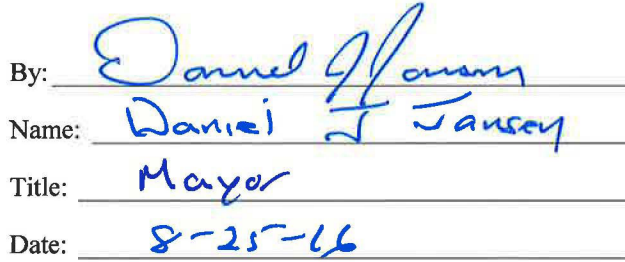 By: Daniel J Jansen
Name: Daniel J Jansen
Title: Mayor
Date: 8-25-16